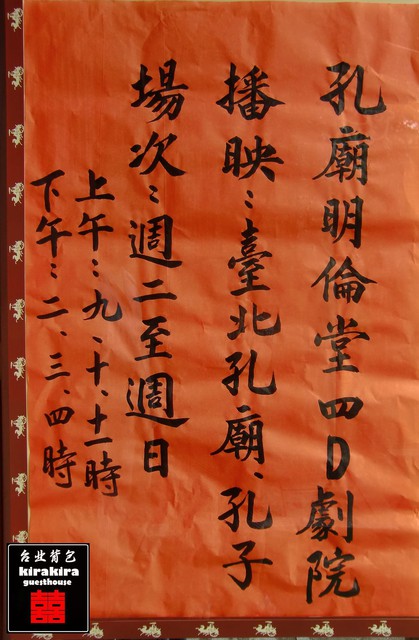 孔廟明倫堂四D劇院
播映：臺北孔廟、孔子
場次：週二至週日
上午：九、十、十一時
下午：二、三、四時
台北背包
kirakira
guesthouse
囍